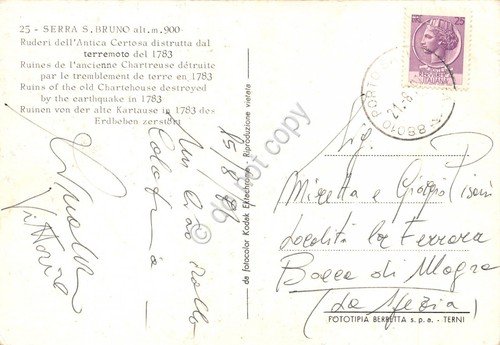 25 - SERRA S. BRUNO alt. m. 900
Ruderi dell'Antica Certosa distrutta dal
terremoto del 1783
Ruines de l'ancienne Chartreuse détruite
par le tremblement de terre en 1783
Ruins of the old Chartehouse destroyed
by the earthquake in 1783
Ruinen von der alte Kartause in 1783 des
Erdbeben zerstört
15/8/
Un caro
Vittoria
da fotocolor Kodak Ektachrome - Riproduzione vietata
do not copy
25
88010 PORTO
21-8
Sig.
Miretta e Giorgio Pisani
Località la Ferrara
Bocca di Magra
(La Spezia)
FOTOTIPIA BERRETTA s.p.a. - TERNI